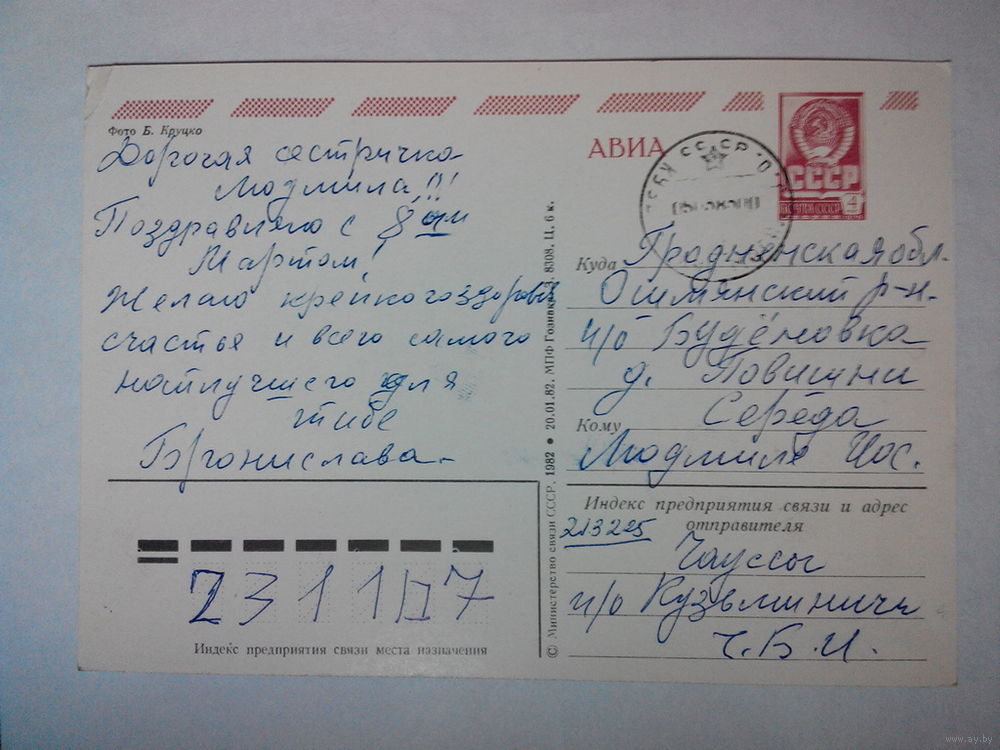 Фото Б. Круцко
АВИА
СССР
4
Дорогая сестричка
Людмила!!!
Поздравляю с 8 ым
Мартом!
Желаю крепкого здоровья
счастья и всего самого
наилучшего для
тибе
Бронислава.
231107
Индекс предприятия связи места назначения
© Министерство связи СССР, 1982 ● 20.01.82. МПФ Гознака. 8308. Ц. 6 к.
Куда Гродненская обл.
Ошмянский р-н.
п/о Будёновка
д. Повишни
Середа
Кому Людмиле Иос.
Индекс предприятия связи и адрес
отправителя
213225
Чауссы
п/о Кузьминичи
Ч.Б.И.
www.ay.by